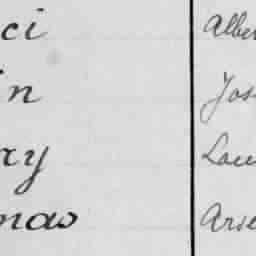 ci Alber
in Jos
xy Lou
mas Arse